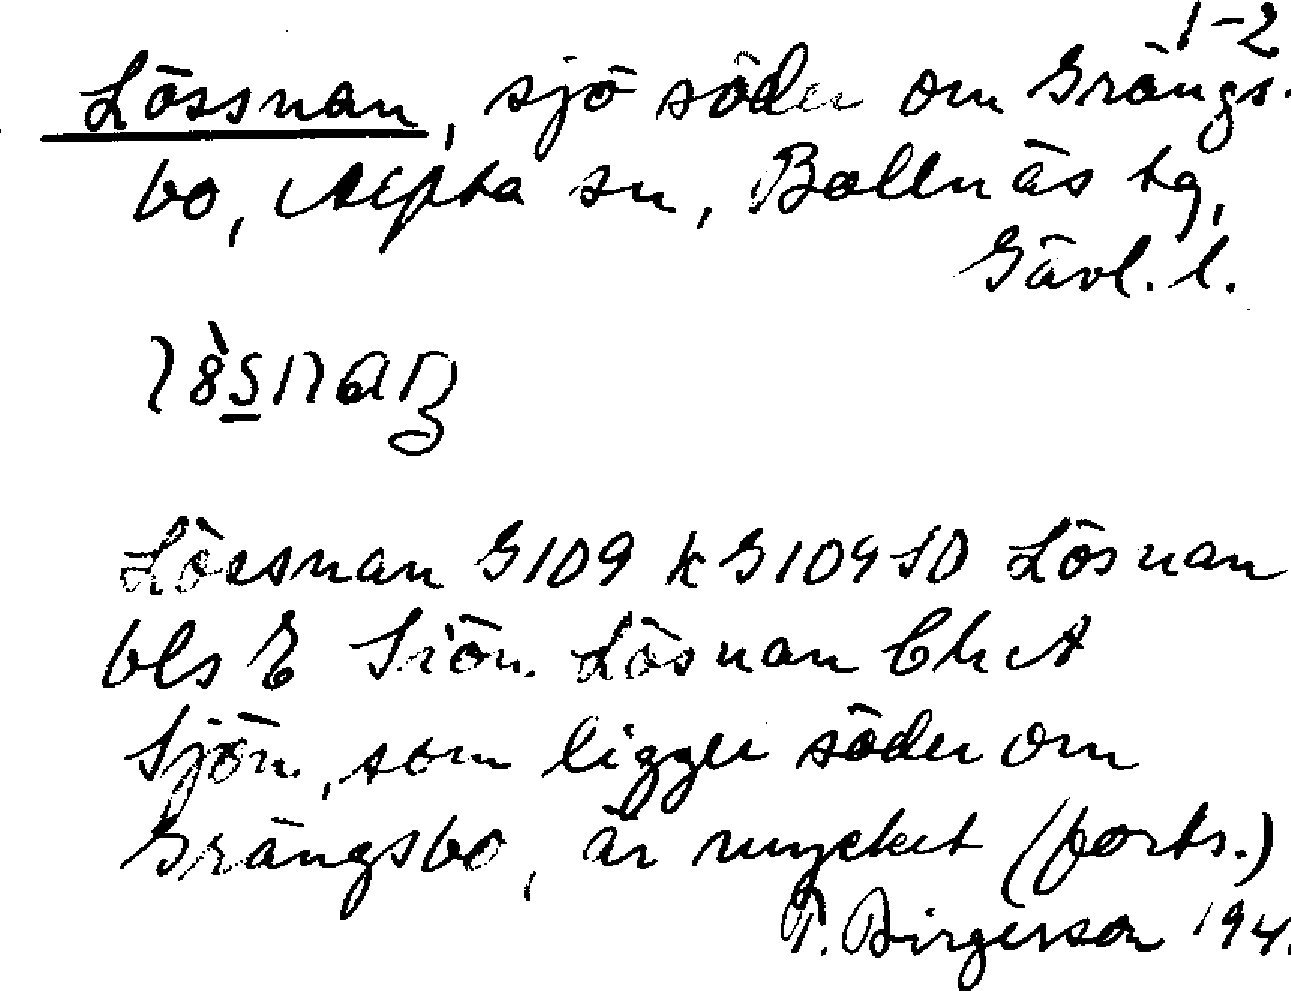 1-2
Lössnan, sjö söder om Grängs-
bo, Alfta sn, Bollnäs tg,
Gävl. l.
Lössnan G109 k G109 SO Lösnan
bls E Siön. Lösnan
Sjön, som ligger söder om
Grängsbo, är mycket (forts.)
T. Birgerson 194